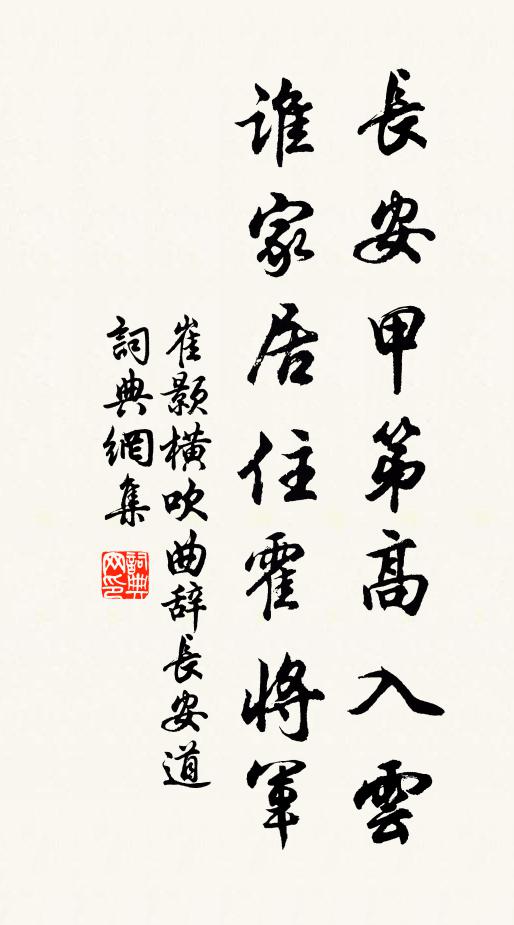 長安甲第高入雲
誰家居住霍將軍
崔顥橫吹曲辞長安道
詞典網集
詞典網印